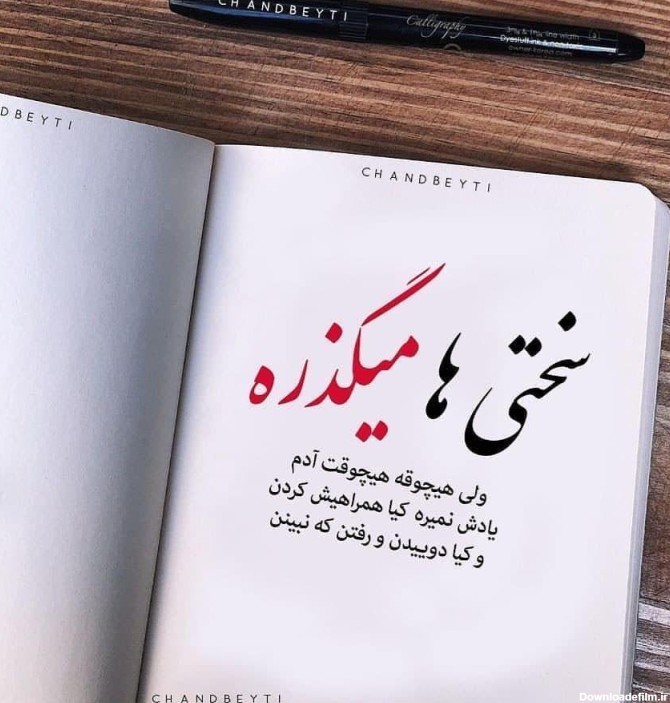 CHANDBEYTI
Calligraphy
DBEYTI
CHANDBEYTI
سختی ها میگذره
ولی هیچوقه هیچوقت آدم
یادش نمیره کیا همراهیش کردن
و کیا دوییدن و رفتن که نبینن
CHANDBEYTI
Downloadefilm.ir